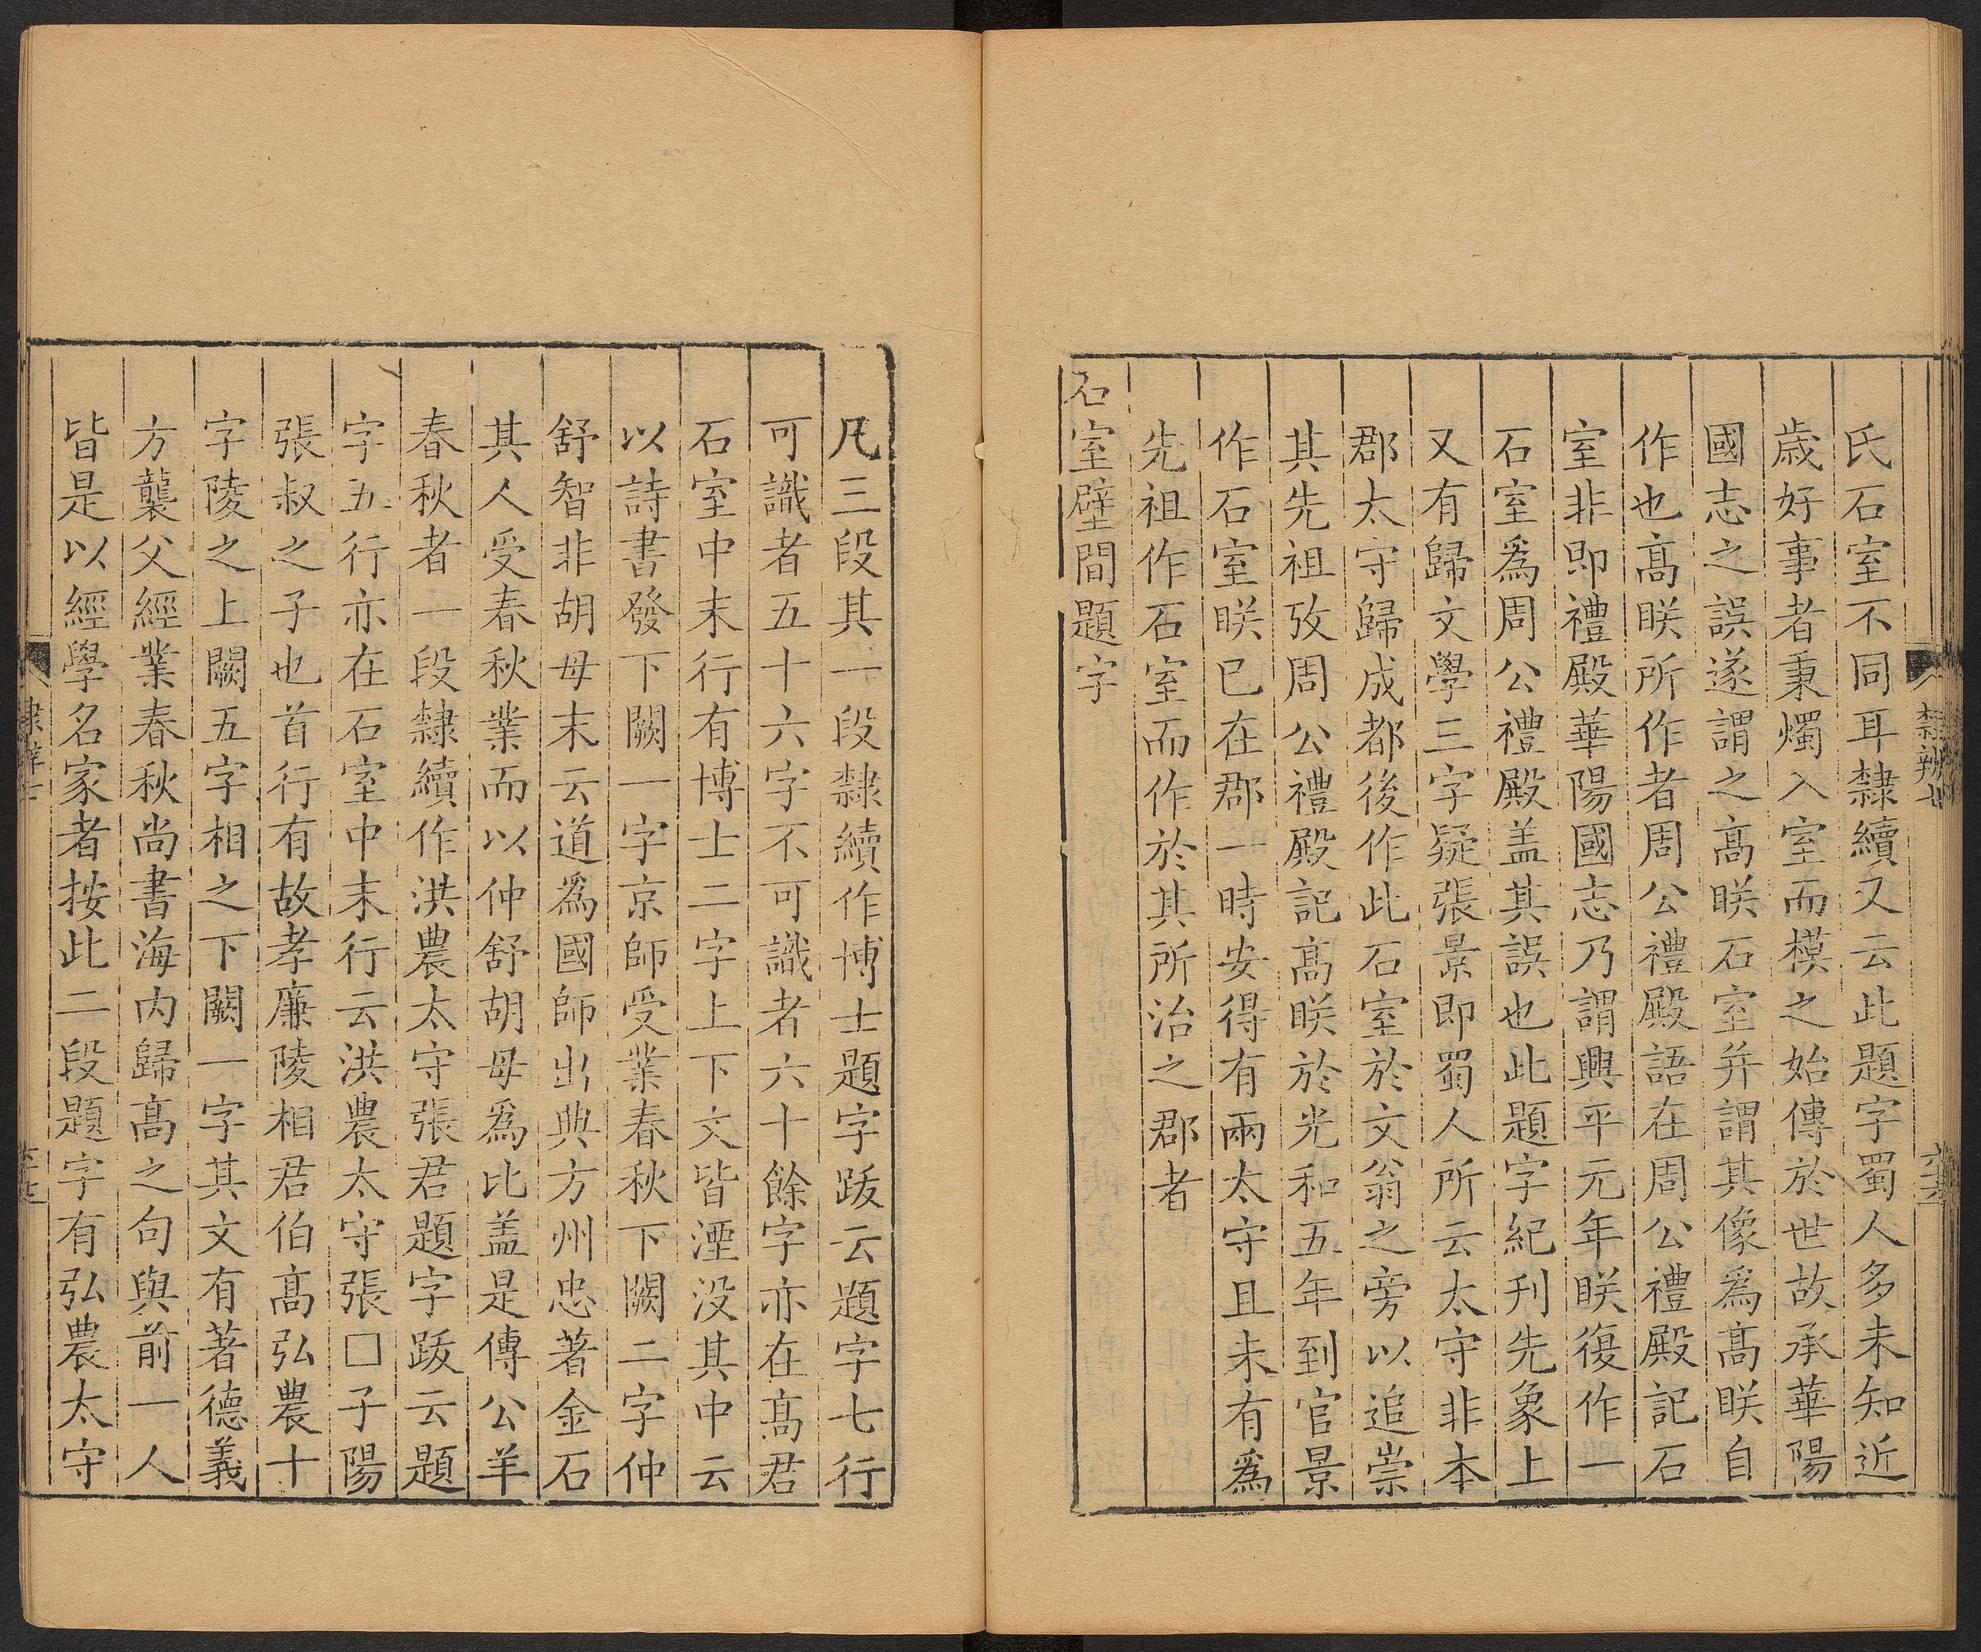 氏石室不同耳隸續又云此題字蜀人多未知近
歲好事者秉燭入室而模之始傳於世故承華陽
國志之誤遂謂之高眹石室并謂其像爲高眹自
作也高眹所作者周公禮殿語在周公禮殿記石
室非即禮殿華陽國志乃謂興平元年眹復作一
石室爲周公禮殿盖其誤也此題字紀刋先象上
又有歸文學三字疑張景即蜀人所云太守非本
郡太守歸成都後作此石室於文翁之旁以追崇
其先祖攷周公禮殿記高眹於光和五年到官景
作石室眹巳在郡一時安得有兩太守且未有爲
先祖作石室而作於其所治之郡者
石室壁間題字
凡三段其一段隸續作博士題字跋云題字七行
可識者五十六字不可識者六十餘字亦在高君
石室中末行有博士二字上下文皆湮没其中云
以詩書發下闕一字京師受業春秋下闕二字仲
舒智非胡母末云道爲國師出典方州忠著金石
其人受春秋業而以仲舒胡母爲比盖是傳公羊
春秋者一段隸續作洪農太守張君題字跋云題
字五行亦在石室中末行云洪農太守張□子陽
張叔之子也首行有故孝廉陵相君伯高弘農十
字陵之上闕五字相之下闕一字其文有著德義
方襲父經業春秋尚書海内歸高之句與前一人
皆是以經學名家者按此二段題字有弘農太守